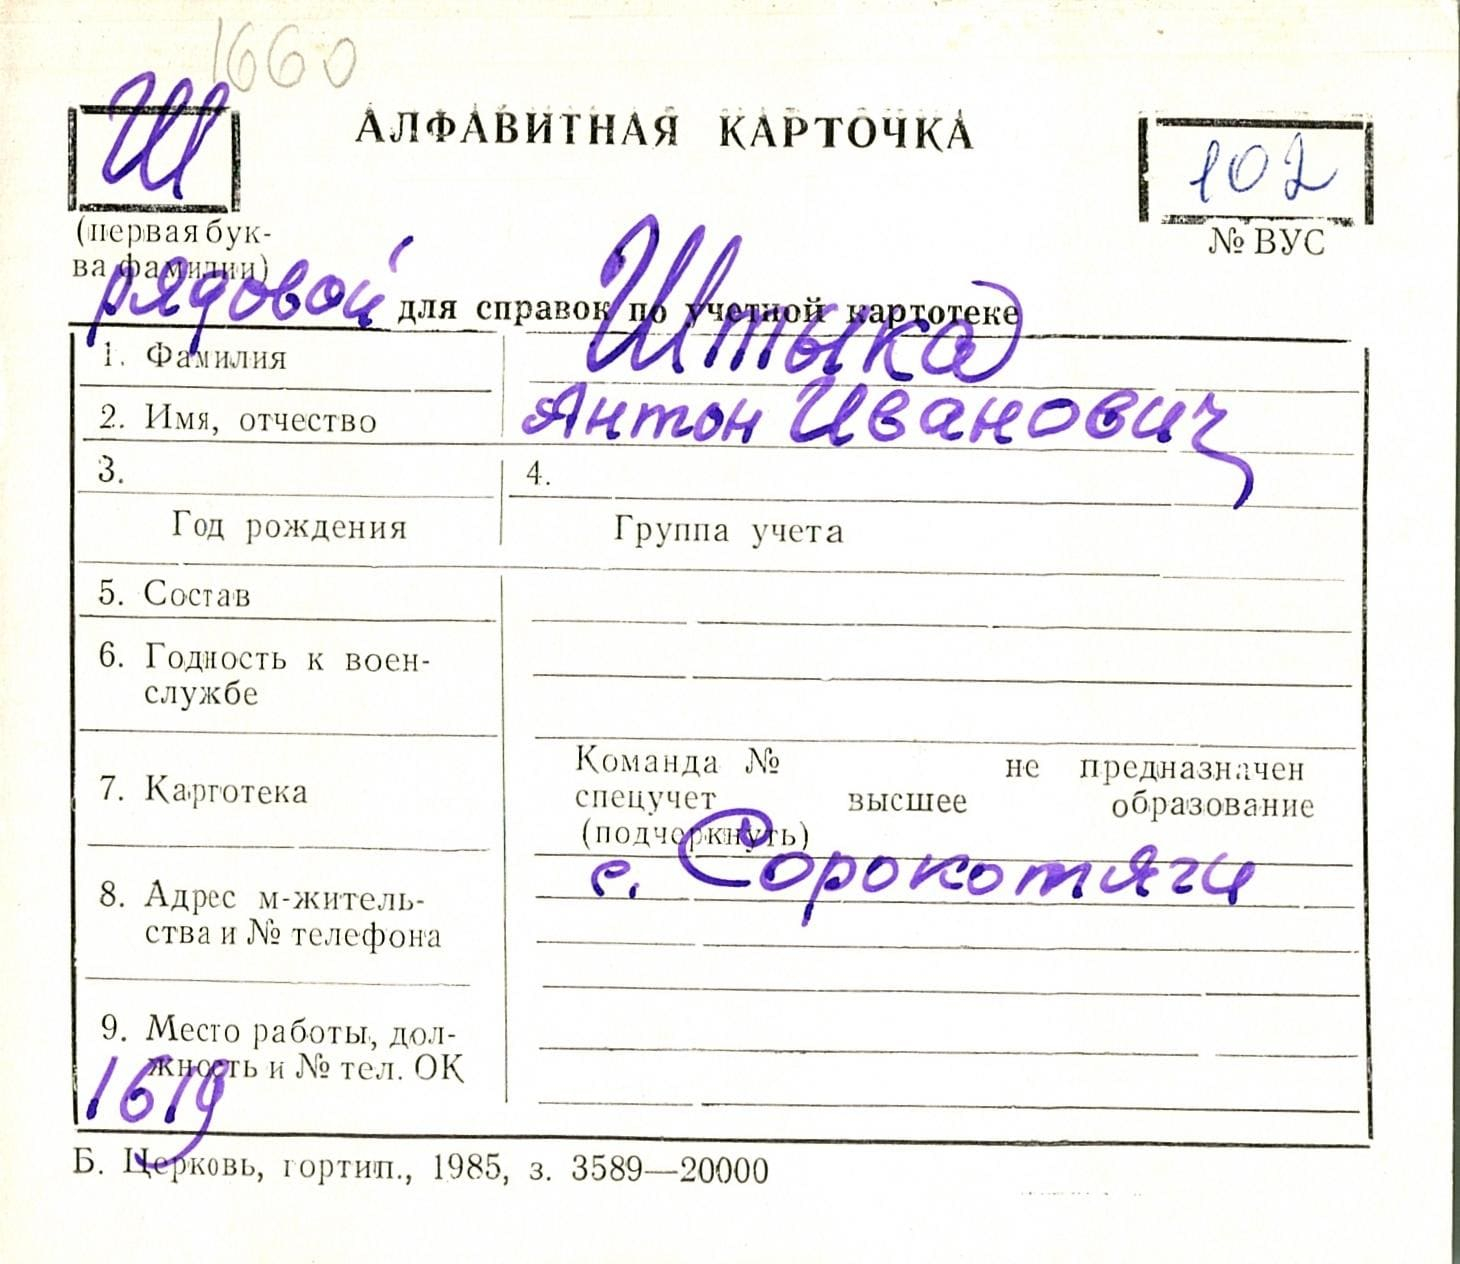 1660
Ш
АЛФАВИТНАЯ КАРТОЧКА
102
(первая бук-
ва фамилии)
№ ВУС
рядовой
для справок по учетной картотеке
1. Фамилия Штыка
2. Имя, отчество Антон Иванович
3. 4.
Год рождения Группа учета
5. Состав
6. Годность к воен-
службе
7. Картотека
Команда № не предназначен
спецучет высшее образование
(подчеркнуть)
8. Адрес м-житель-
ства и № телефона
с. Сорокотяги
9. Место работы, дол-
жность и № тел. ОК
1619
Б. Церковь, гортип., 1985, з. 3589—20000